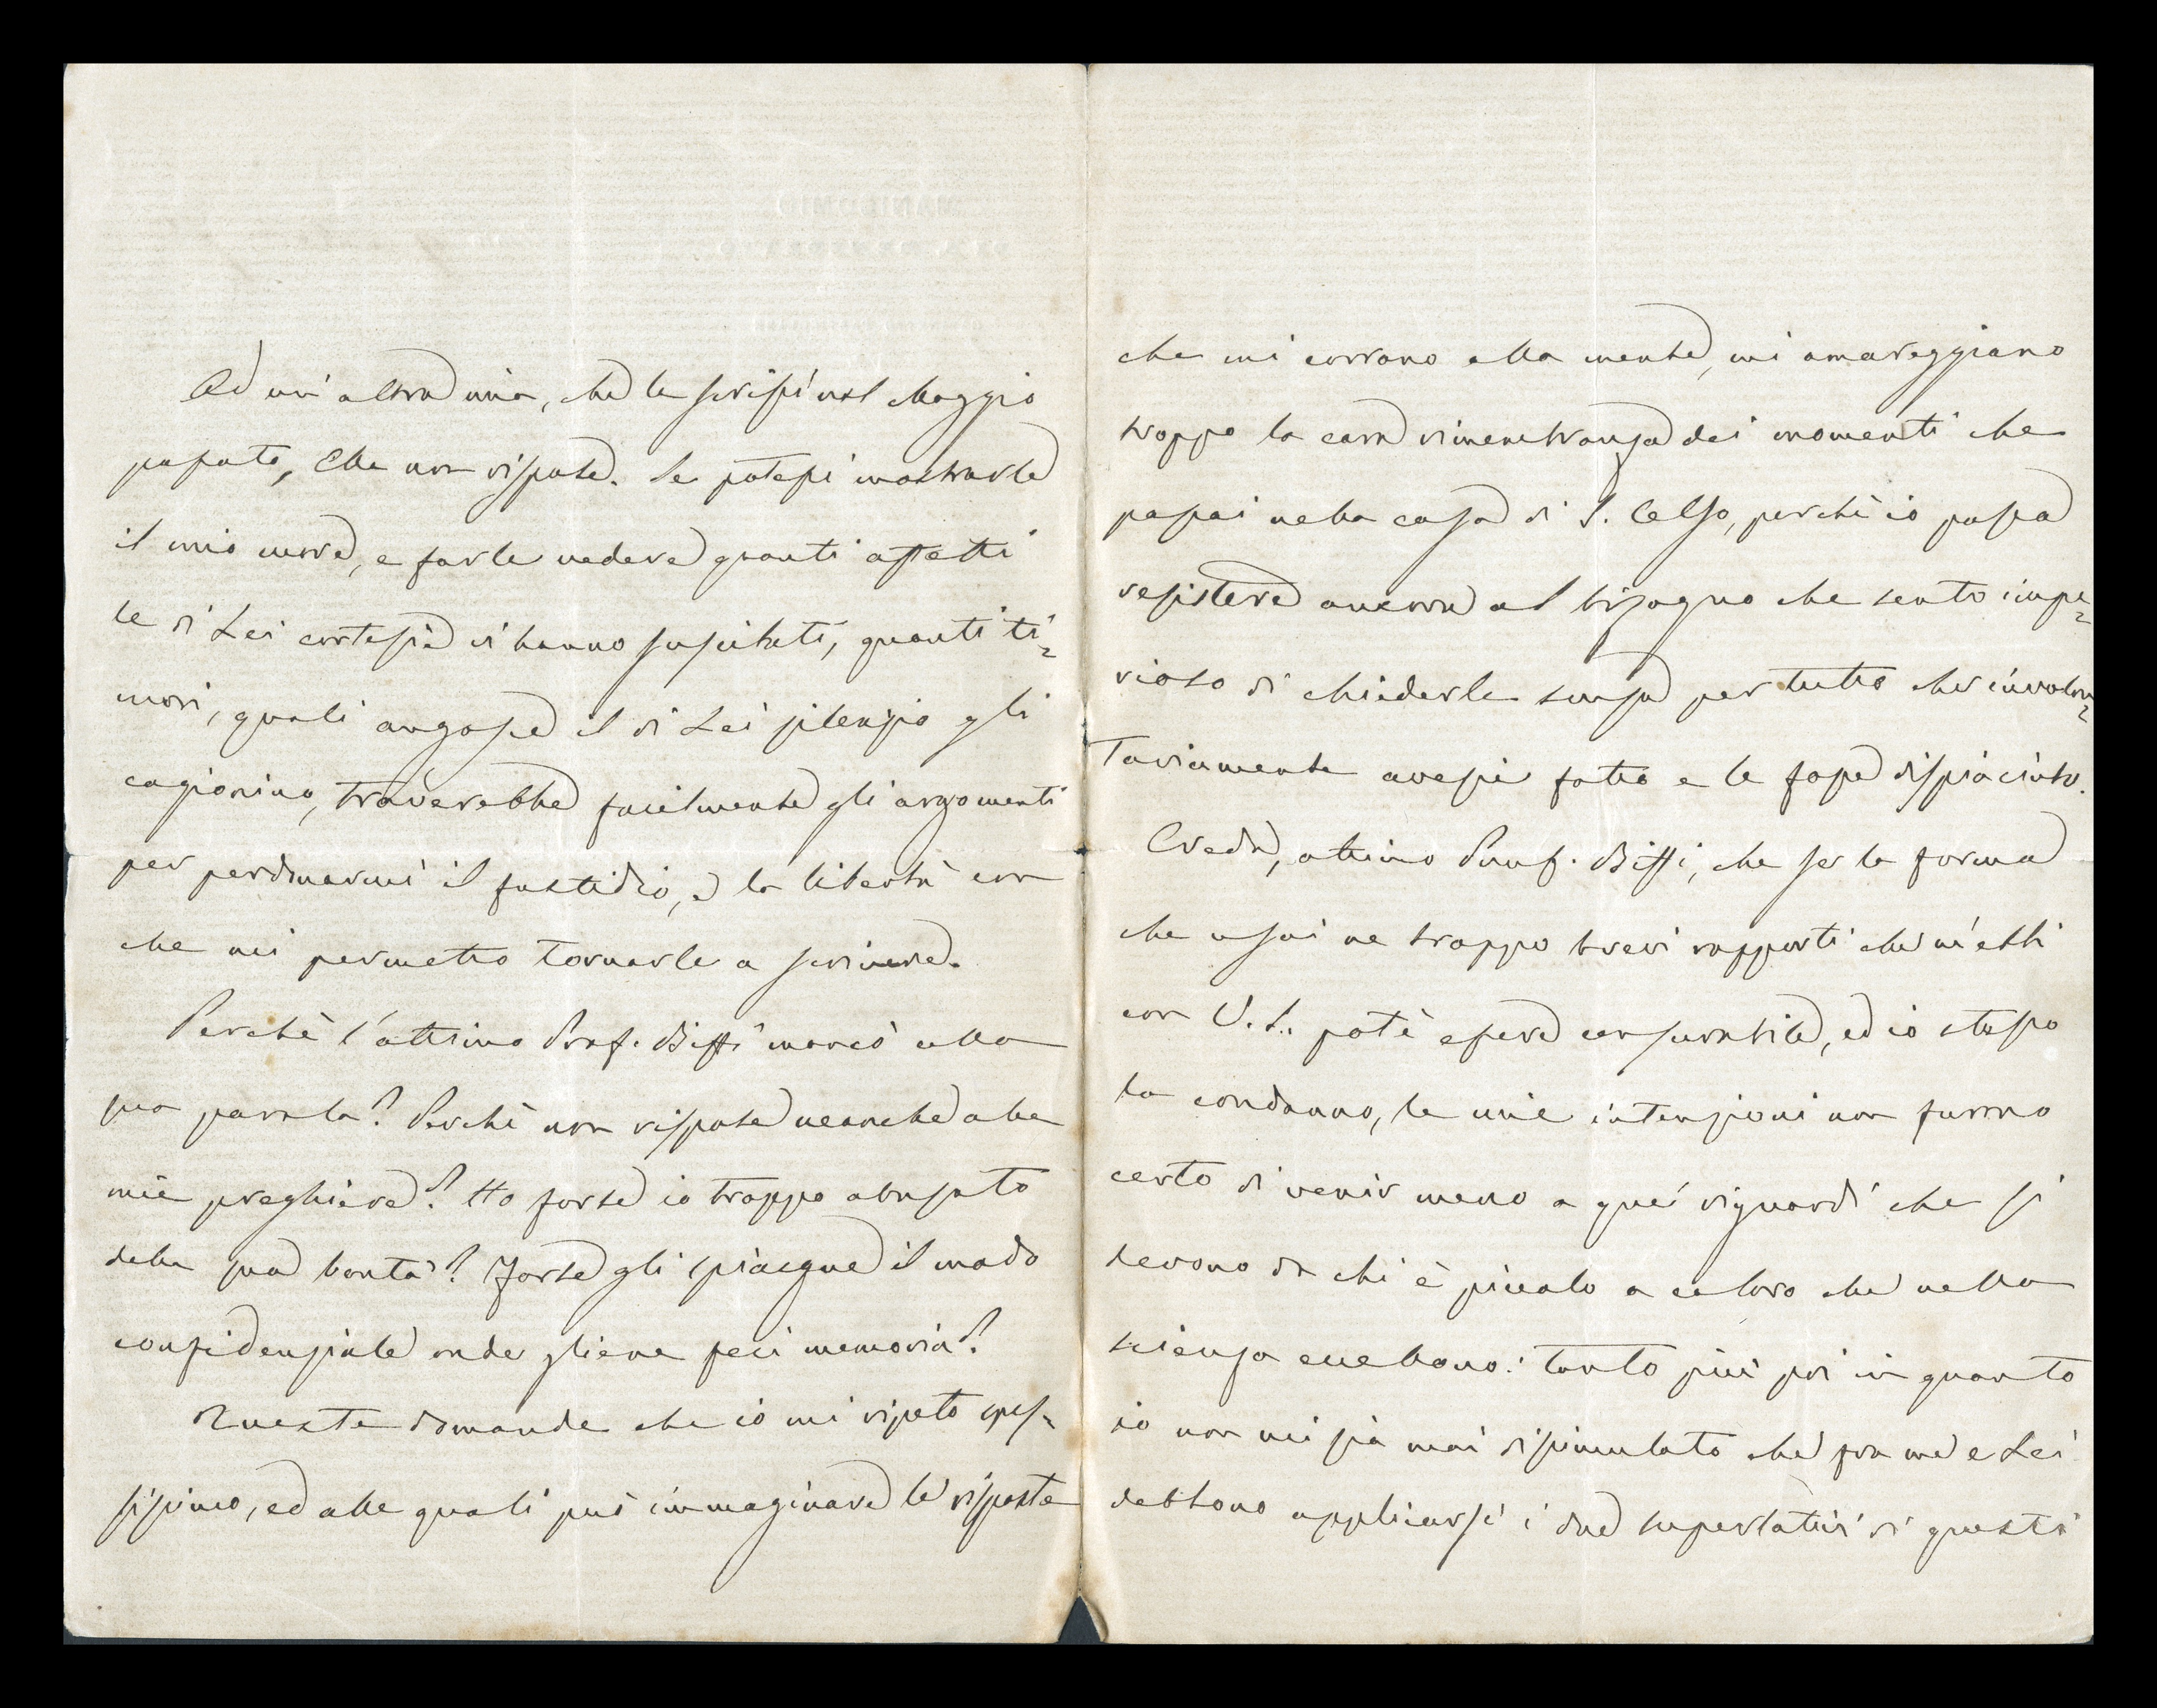 Ad un'altra mia, che le scrissi nel Maggio
passato, Ella non rispose. Se potessi mostrarle
il mio cuore, e farle vedere quanti affetti
le di Lei cortesie vi hanno suscitati, quanti ti=
mori, quali angosce il di Lei silenzio gli
cagionino, troverebbe facilmente gli argomenti
per perdonarmi il fastidio, e la libertà con
che mi permetto tornarle a scrivere.
Perchè l'ottimo Prof. Biffi mancò alla
sua parola? Perchè non rispose neanche alle
mie preghiere? Ho forse io troppo abusato
della sua bontà? Forse gli spiacque il modo
confidenziale onde gliene feci memoria?
Queste domande che io mi ripeto spes=
sissimo, ed alle quali può immaginare le risposte
che mi corrono alla mente, mi amareggiano
troppo la cara rimembranza dei momenti che
passai nella casa di S. Celso, perchè io possa
resistere ancora al bisogno che sento impe=
rioso di chiederle scusa per tutto che involon=
tariamente avessi fatto e le fosse dispiaciuto.
Creda, ottimo Prof. Biffi, che se la forma
che usai ne troppo brevi rapporti che m'ebbi
con V. S. potè essere censurabile, ed io stesso
la condanno, le mie intenzioni non furono
certo di venir meno a quei riguardi che si
devono da chi è piccolo a coloro che nella
scienza eccellono: tanto più poi in quanto
io non mi sia mai dissimulato che fra me e Lei
debbono applicarsi i due superlativi di questi